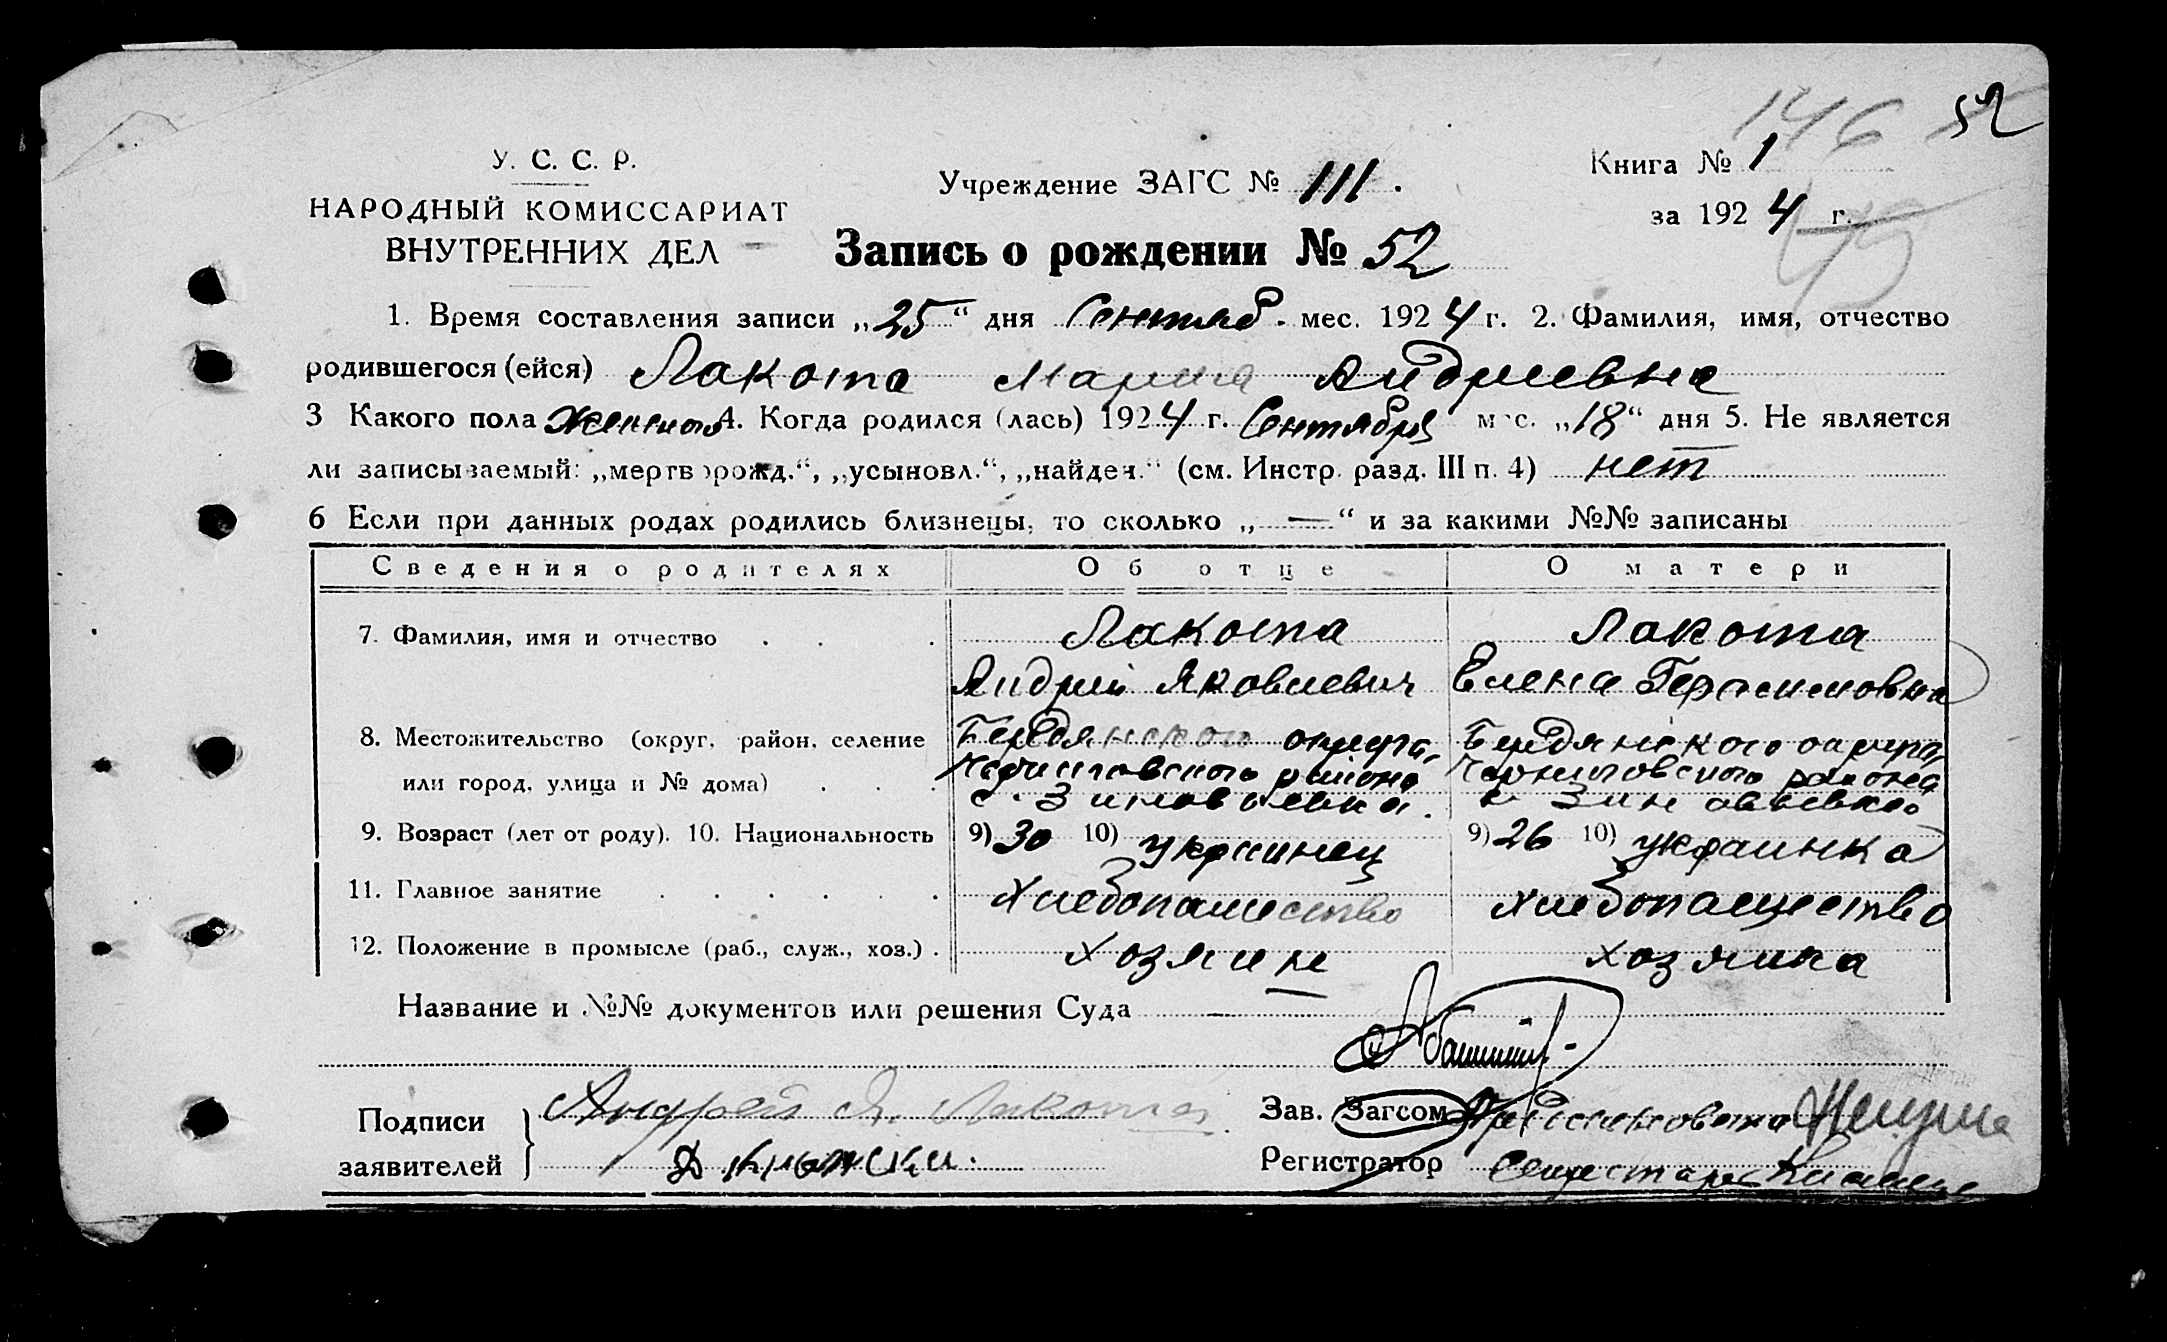 146 52
У. С. С. Р.
НАРОДНЫЙ КОМИССАРИАТ
ВНУТРЕННИХ ДЕЛ
Учреждение ЗАГС № 111.
Книга № 1
за 1924 г.
Запись о рождении № 52
1. Время составления записи „25“ дня Сентяб. мес. 1924 г. 2. Фамилия, имя, отчество
родившегося (ейся) Лакота Мария Андриевна
3 Какого пола женского 4. Когда родился (лась) 1924 г. Сентября мес. „18“ дня 5. Не является
ли записываемый: „мертворожд.“, „усыновл.“, „найден.“ (см. Инстр. разд. III п. 4) нет
6 Если при данных родах родились близнецы, то сколько „—“ и за какими №№ записаны
Сведения о родителях Об отце О матери
7. Фамилия, имя и отчество Лакота Лакота
Андрий Яковлевич Елена Герасимовна
8. Местожительство (округ, район, селение Бердянского округа, Бердянского округа,
или город, улица и № дома) Черниговского района Черниговского района
с. Зиновьевка. с. Зиновьевка
9. Возраст (лет от роду). 10. Национальность 9) 30 10) украинец 9) 26 10) украинка
11. Главное занятие Хлебопашество хлебопащество
12. Положение в промысле (раб., служ., хоз.) хозяин хозяика
Название и №№ документов или решения Суда —
Подписи заявителей Андрей Я. Лакота
Зав. Загсом
Регистратор